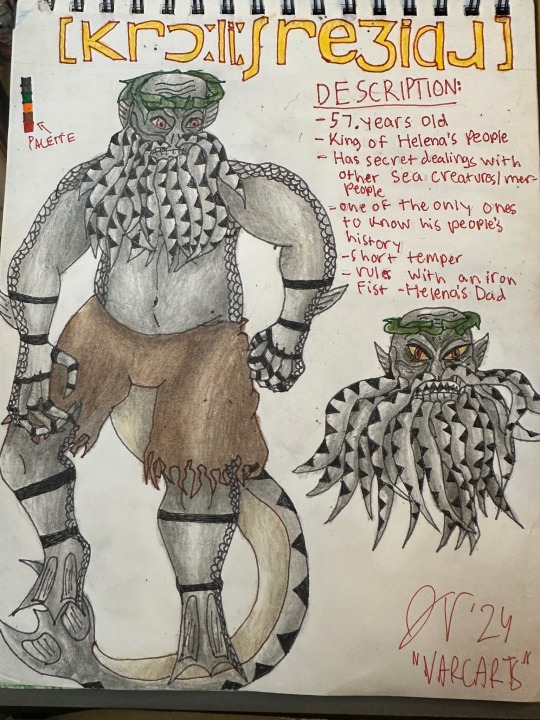 [Krɔːliːʃreʒiɑɹ]
DESCRIPTION:
PALETTE
- 57. years old
- King of Helena's People
- Has secret dealings with
other sea creatures/mer-
people
- one of the only ones
to know his people's
history
- short temper
- rules with an iron
Fist - Helena's Dad
'24
"VARCARTS"